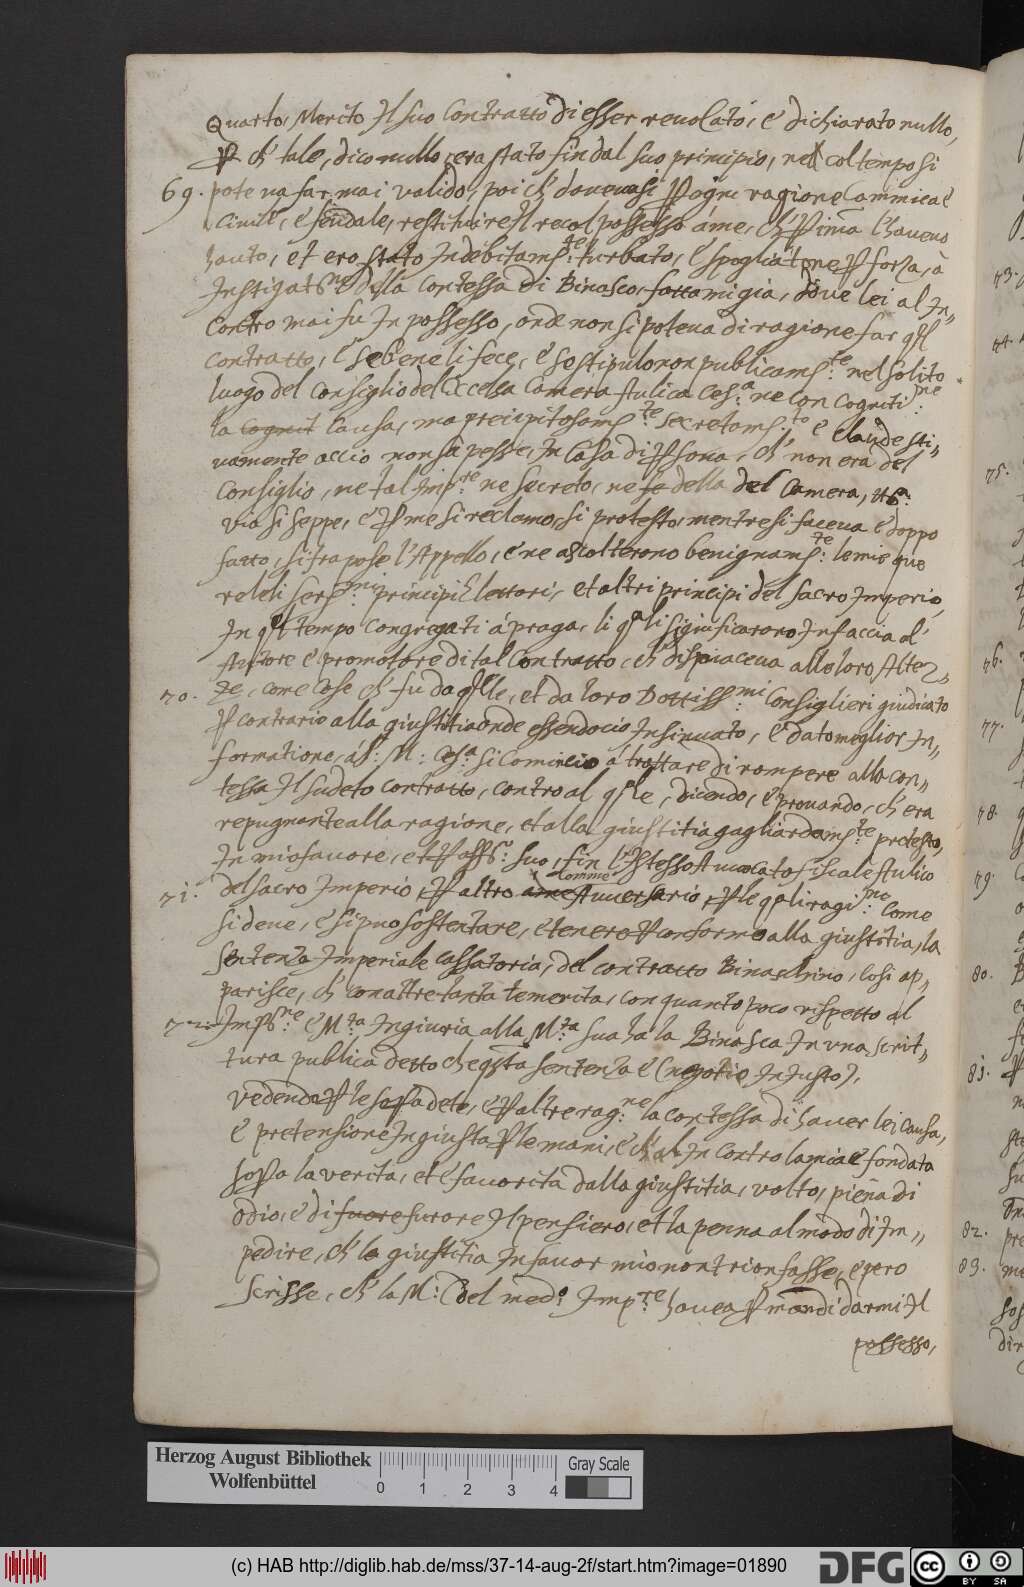 Quarto, Merito Il suo Contratto di esser reuocato, e dichiarato nullo,
ꝑ ch' tale, dico nullo, era stato fin dal suo principio, ne col tempo si
69. poteua far mai valido, poi ch' doueuasi ꝑ ogni ragione Cammicae
Ciuile, e feudale, restituiresi il possesso á me, ch' ꝑ l'haueuo
hauto, et ero stato Indebitams:te turbato, e spogliatone ꝑ forza, à
Instigats:ne della Contessa di Binasco, fattami gia, doue lei al In„
contro mai fu In possesso, onde non si poteua di ragione far qsl
contratto, e sebene li fece, e se stipulo non publicams:te nel solito
luogo del Consiglio del Eccelsa Camera Aulica Ces:a ne con Cogniti:ne
la Causa, ma precipitosams:te secretams:to e Clandesti„
namente accio non sapesse, In Casa di ꝑsona, ch' non era del
Consiglio, ne tal Imp:re ne secreto, ne della del Camera,
via si seppe, e ꝑ me si reclamo, si protesto, mentre si faceua e doppo
fatto, si frapose l'Appello, e ne ascolterono benignams:te le mie que
rele li sers:mi principi Elettori, et altri principi del sacro Imperio,
In qsl tempo Congregati á praga, li qsali significarono In faccia al'
Auttore e promotore di tal Contratto, ch' dispiaceua allo loro Altez„
70. ze, come Cose ch' fu da qslle, et da loro Dottiss:mi Consiglieri giudicato
ꝑ contrario alla giustitia onde essendo cio Insinuato, e dato miglior In„
formatione, á S: M: Ces:a si Comincio á trattare di rompere alla con„
tessa Il sudeto contratto, contro al qsle, dicendo, e prouando, ch' era
repugnante alla ragione, et alla giustitia gagliardams:te protesto,
In mio fauore, et ꝑ offs: suo, fin l'Istesso Auuocato fiscale Aulico
Comme
71. del sacro Imperio, ꝑ altro ame Auuersario, ꝑ le qsali ragi:ne Come
si deue, e si puo sostentare, e tenere ꝑ conforme alla giustitia, la
sentenza Imperiale Cassatoria, del contratto Binaschino, Cosi ap„
parisce, ch' con altretanta temerita, con quanto poco rispetto al
72. Imps:re e M:ta Ingiuria alla M:ta sua ha la Binasca In vna scrit„
tura publica detto che qsta sentenza e (negotio Iniusto),
vedendo ꝑ le sopadete, e ꝑ altre rag:ne la contessa di hauer lei causa,
e pretensione Ingiusta ꝑ le mani, e ch' al Incontro la mia e fondata
sopa la verita, et e fauorita dalla giustitia, volto, piena di
odio, e di fuore furore Il pensiero, et la penna al modo di Im„
pedire, ch' la giustitia In fauor mio non trionfasse, e pero
scrisse, ch' la M: Ces:a del med:o Imp:re hauea ꝑ mandi darmi Il
possesso,
73.
74.
75.
76.
77.
78.
79.
80.
81.
82.
83.
Herzog August Bibliothek
Wolfenbüttel
0 1 2 3 4
Gray Scale
(c) HAB http://diglib.hab.de/mss/37-14-aug-2f/start.htm?image=01890
DFG
cc BY SA